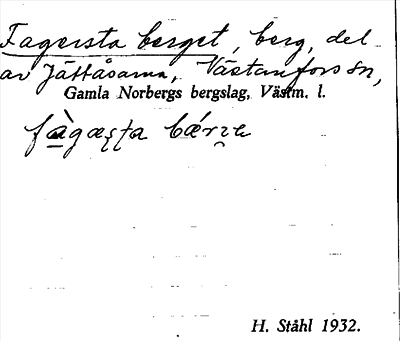 Fagersta berget, berg, del
av Jättåsarna, Västanfors sn,
Gamla Norbergs bergslag, Västm. l.
H. Ståhl 1932.